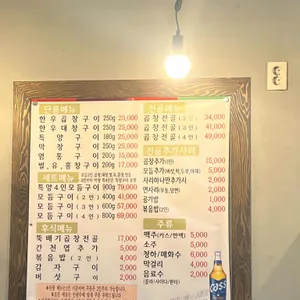 단품메뉴
한우곱창구이 250g 25,000
한우대창구이 250g 25,000
특양구이 180g 25,000
막창구이 250g
염통구이 200g 15,000
벌,유,홍창구이 20,000
세트메뉴
특양4인모듬구이 900g 79,000
모듬구이(2인) 400g 41,000
모듬구이(3인) 600g 61,000
모듬구이(4인) 800g 81,000
후식메뉴
뚝배기곱창전골 17,000
간천엽추가 5,000
볶음밥(2인) 4,000
감자구이 2,000
버섯구이 2,000
전골메뉴
곱창전골(2인) 34,000
곱창전골(3인) 41,000
곱창전골(4인) 49,000
전골추가사리
곱창추가(1인) 15,000
5,000
사리하나반추가시 2,000
면사리(우동,당면) 2,000
공기밥 1,000
볶음밥(2인) 4,000
주류
맥주(카스/한맥) 5,000
소주 5,000
청하/매화수 6,000
막걸리 4,000
음료수 2,000
(콜라/사이다/환타)
Cass